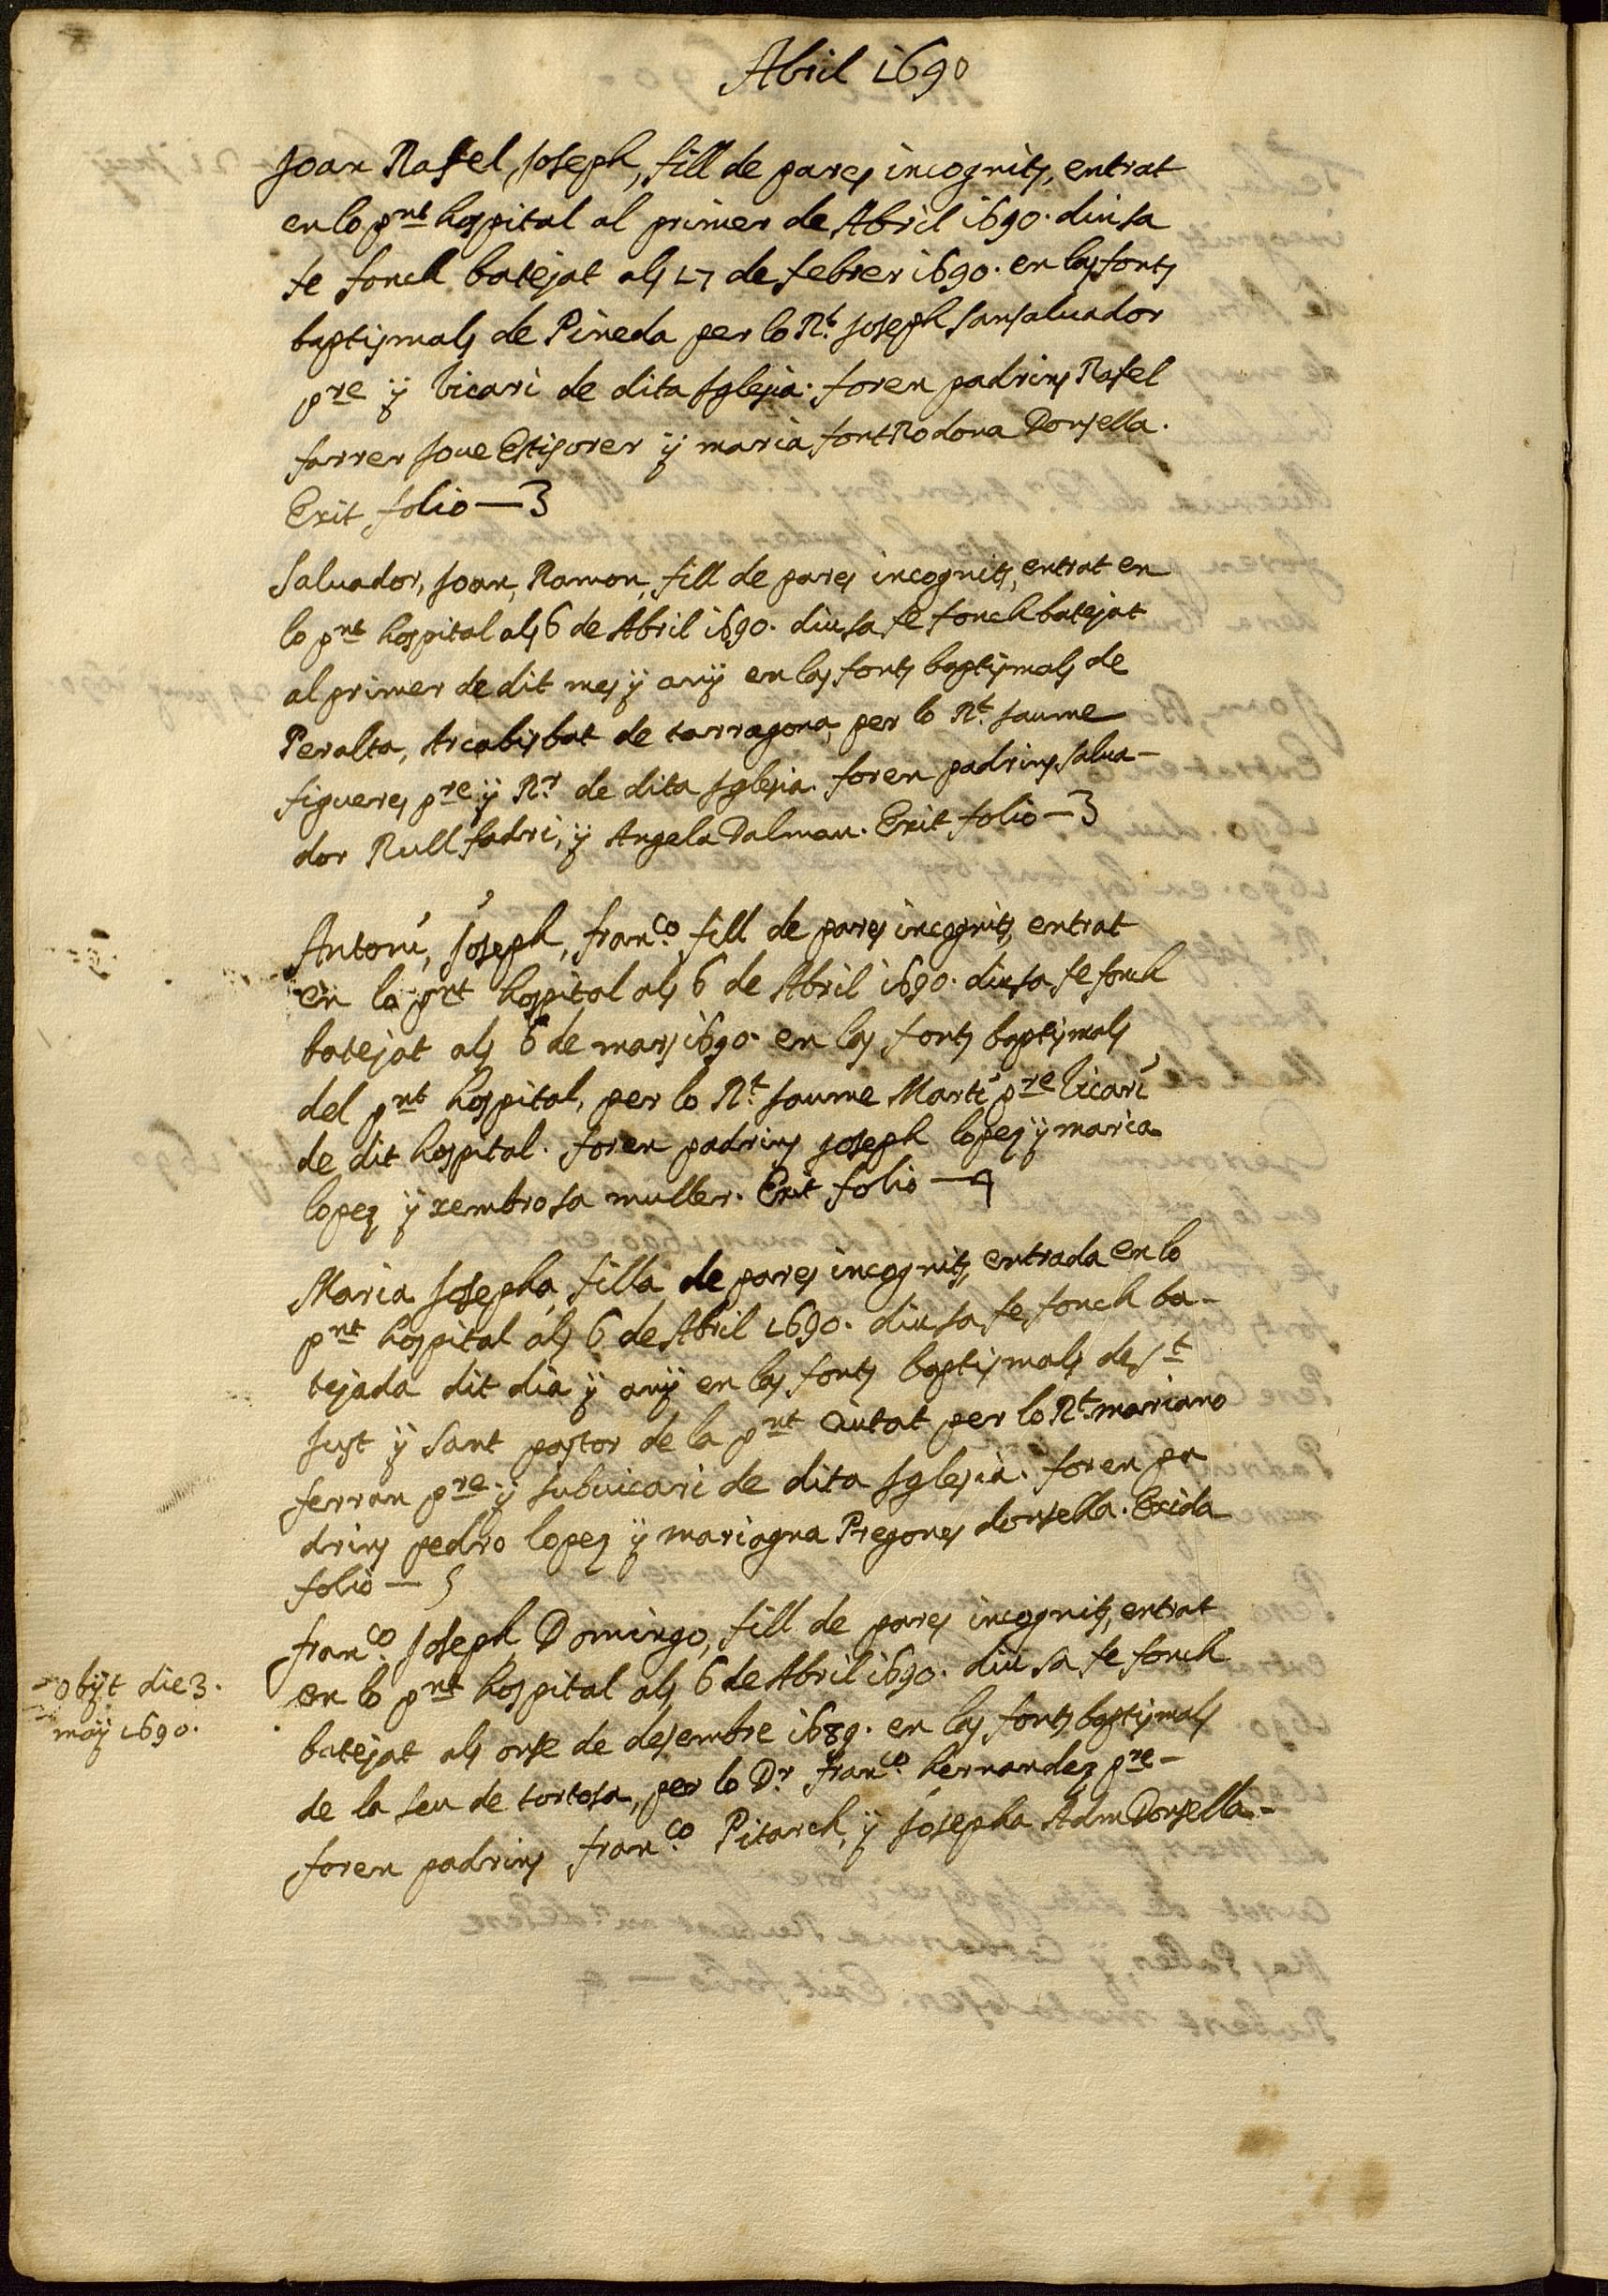 Abril 1690
Joan Rafel, Joseph, fill de pares incognits, entrat
en lo pnt hospital al primer de Abril 1690. diu sa
fe fonch batejat als 27 de febrer 1690. en las fonts
baptismals de Pineda per lo Rt. Joseph Sansaluador
pre ÿ Vicari de dita Jglesia. foren padrins Rafel
farrer Joue Estisorer ÿ maria fontRodona Donsella.
Exit folio — 3
Saluador, Joan, Ramon, fill de pares incognits, entrat en
lo pnt hospital als 6 de Abril 1690. diu sa fe fonch batejat
al primer de dit mes ÿ anÿ en las fonts baptismals de
Peralta, Arcabisbat de tarragona, per lo Rt. Jaume
figueres pre ÿ Rr. de dita Jglesia. foren padrins Salua-
dor Rull fadri, ÿ Angela Dalmau. Exit folio — 3
Antoni, Joseph, franco. fill de pares incognits, entrat
en lo pnt hospital als 6 de Abril 1690. diu sa fe fonch
batejat als 6 de mars 1690. en las fonts baptismals
del pnt hospital, per lo Rt. Jaume Marti pre Vicari
de dit hospital. foren padrins Joseph lopez ÿ maria
lopez ÿ xembrosa muller. Exit folio — 4
Maria Josepha, filla de pares incognits, entrada en lo
pnt hospital als 6 de Abril 1690. diu sa fe fonch ba-
tejada dit dia ÿ anÿ en las fonts baptismals de St
Just ÿ Sant pastor de la pnt Ciutat per lo Rt. mariano
ferran pre ÿ subuicari de dita Jglesia. foren pa
drins pedro lopez ÿ mariagna Pregones donsella. Exida
folio — 5
franco. Joseph Domingo, fill de pares incognits, entrat
en lo pnt hospital als 6 de Abril 1690. diu sa fe fonch
batejat als onse de desembre 1689. en las fonts baptismals
de la Seu de tortosa, per lo Dr. franco. hernandez pre-
foren padrins franco. Pitarch, ÿ Josepha Adm Donsella-
obÿt die 3.
maÿ 1690.